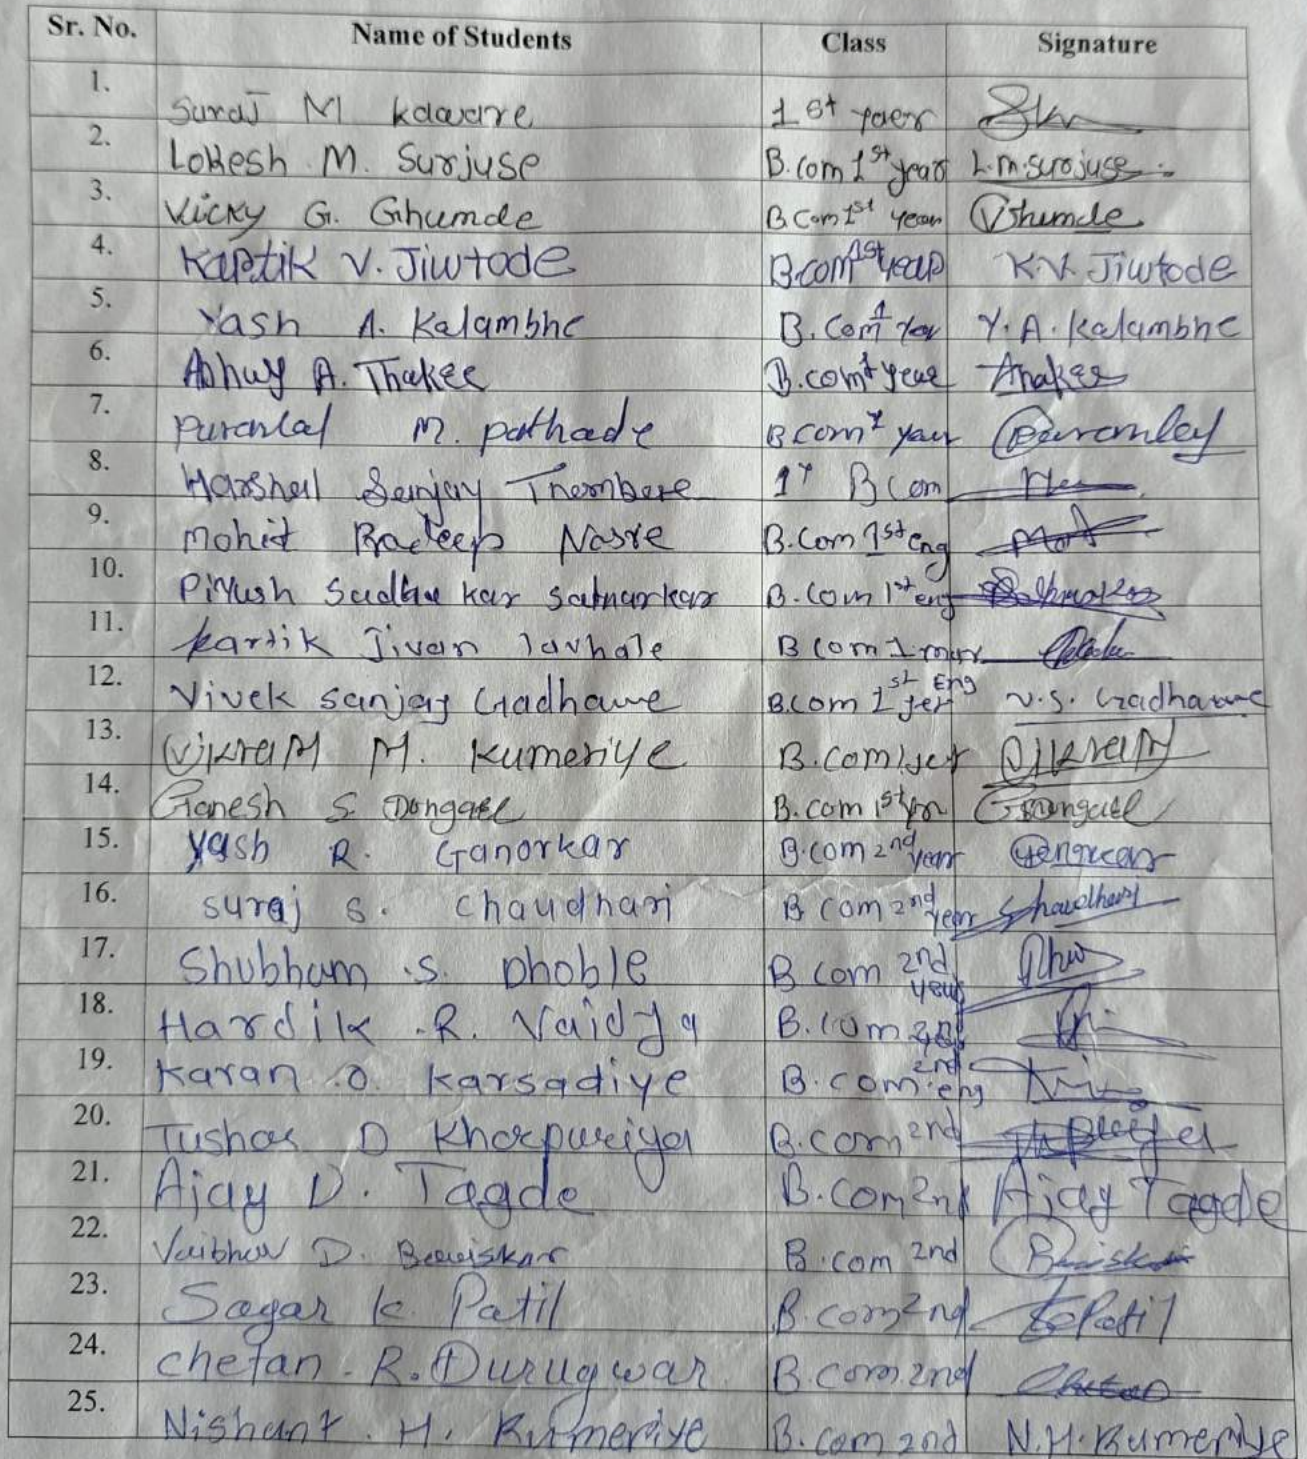 Sr. No. Name of Students Class Signature
1. Suraj M kaware 1 st yaer
2. Lokesh M. Surjuse B.com 1st year L.M.Surojuse
3. Vicky G. Ghumde B.Com 1st year Ghumde
4. Kartik V. Jiwtode B.com 1st year K.V. Jiwtode
5. Yash A. Kalambhe B. Com 1 Y. A. Kalambhe
6. Abhay A. Thakee B.com 1 year Thakee
7. puranlal M. pathade B com 1 year
8. Harshal Sanjay Thembare 1 B com
9. Mohit Pradeep Nasre B.Com 1st eng
10. Piyush Sudhakar Satnarkar B.com 1st eng
11. kartik Jivan lavhale B com 1
12. Vivek Sanjay Gadhawe B.com 1st yer Eng V.S. Gadhawe
13. VikraM M. Kumeriye B.com 1 yer VikraM
14. Ganesh S. Dongare B.com 1st
15. yash R. Ganorkar B.com 2nd year
16. suraj s. chaudhari B com 2nd year Shaudhari
17. Shubham .S. Dhoble B com 2nd year
18. Hardik .R. Vaidya B.com 2nd
19. Karan .O. Karsadiye B.com 2nd eng
20. Tushar D Khorpuriya B.com 2nd
21. Ajay D. Tagde B.com 2nd Ajay Tagde
22. Vaibhav D. Bawiskar B.com 2nd
23. Sagar k. Patil B.com 2nd Patil
24. chetan . R. Durugwar B.com 2nd Chetan
25. Nishant . H. Kumeriye B.com 2nd N.H. Kumeriye